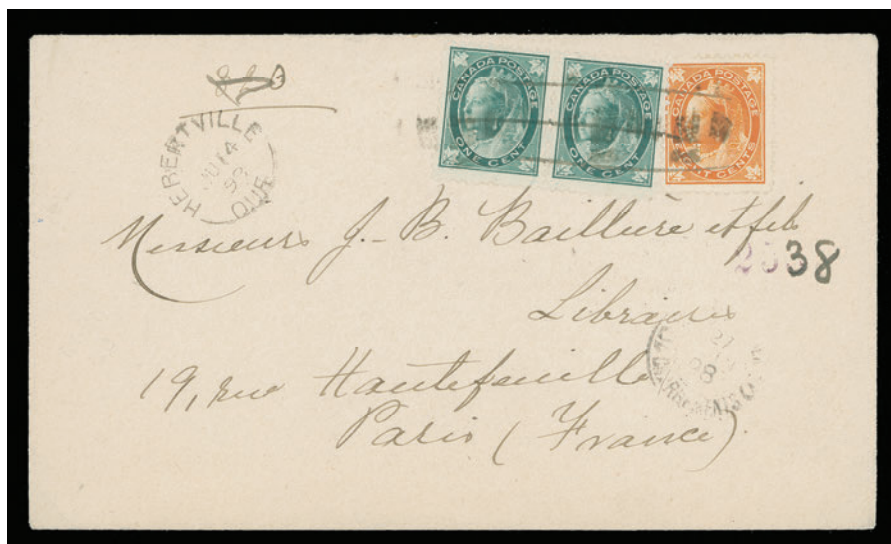 CANADA POSTAGE
ONE CENT
CANADA POSTAGE
ONE CENT
CANADA POSTAGE
EIGHT CENTS
HEBERTVILLE
14
QUE
Messieurs J.-B. Baillière et fils
38
Libraires
19, rue Hautefeuille
Paris (France).